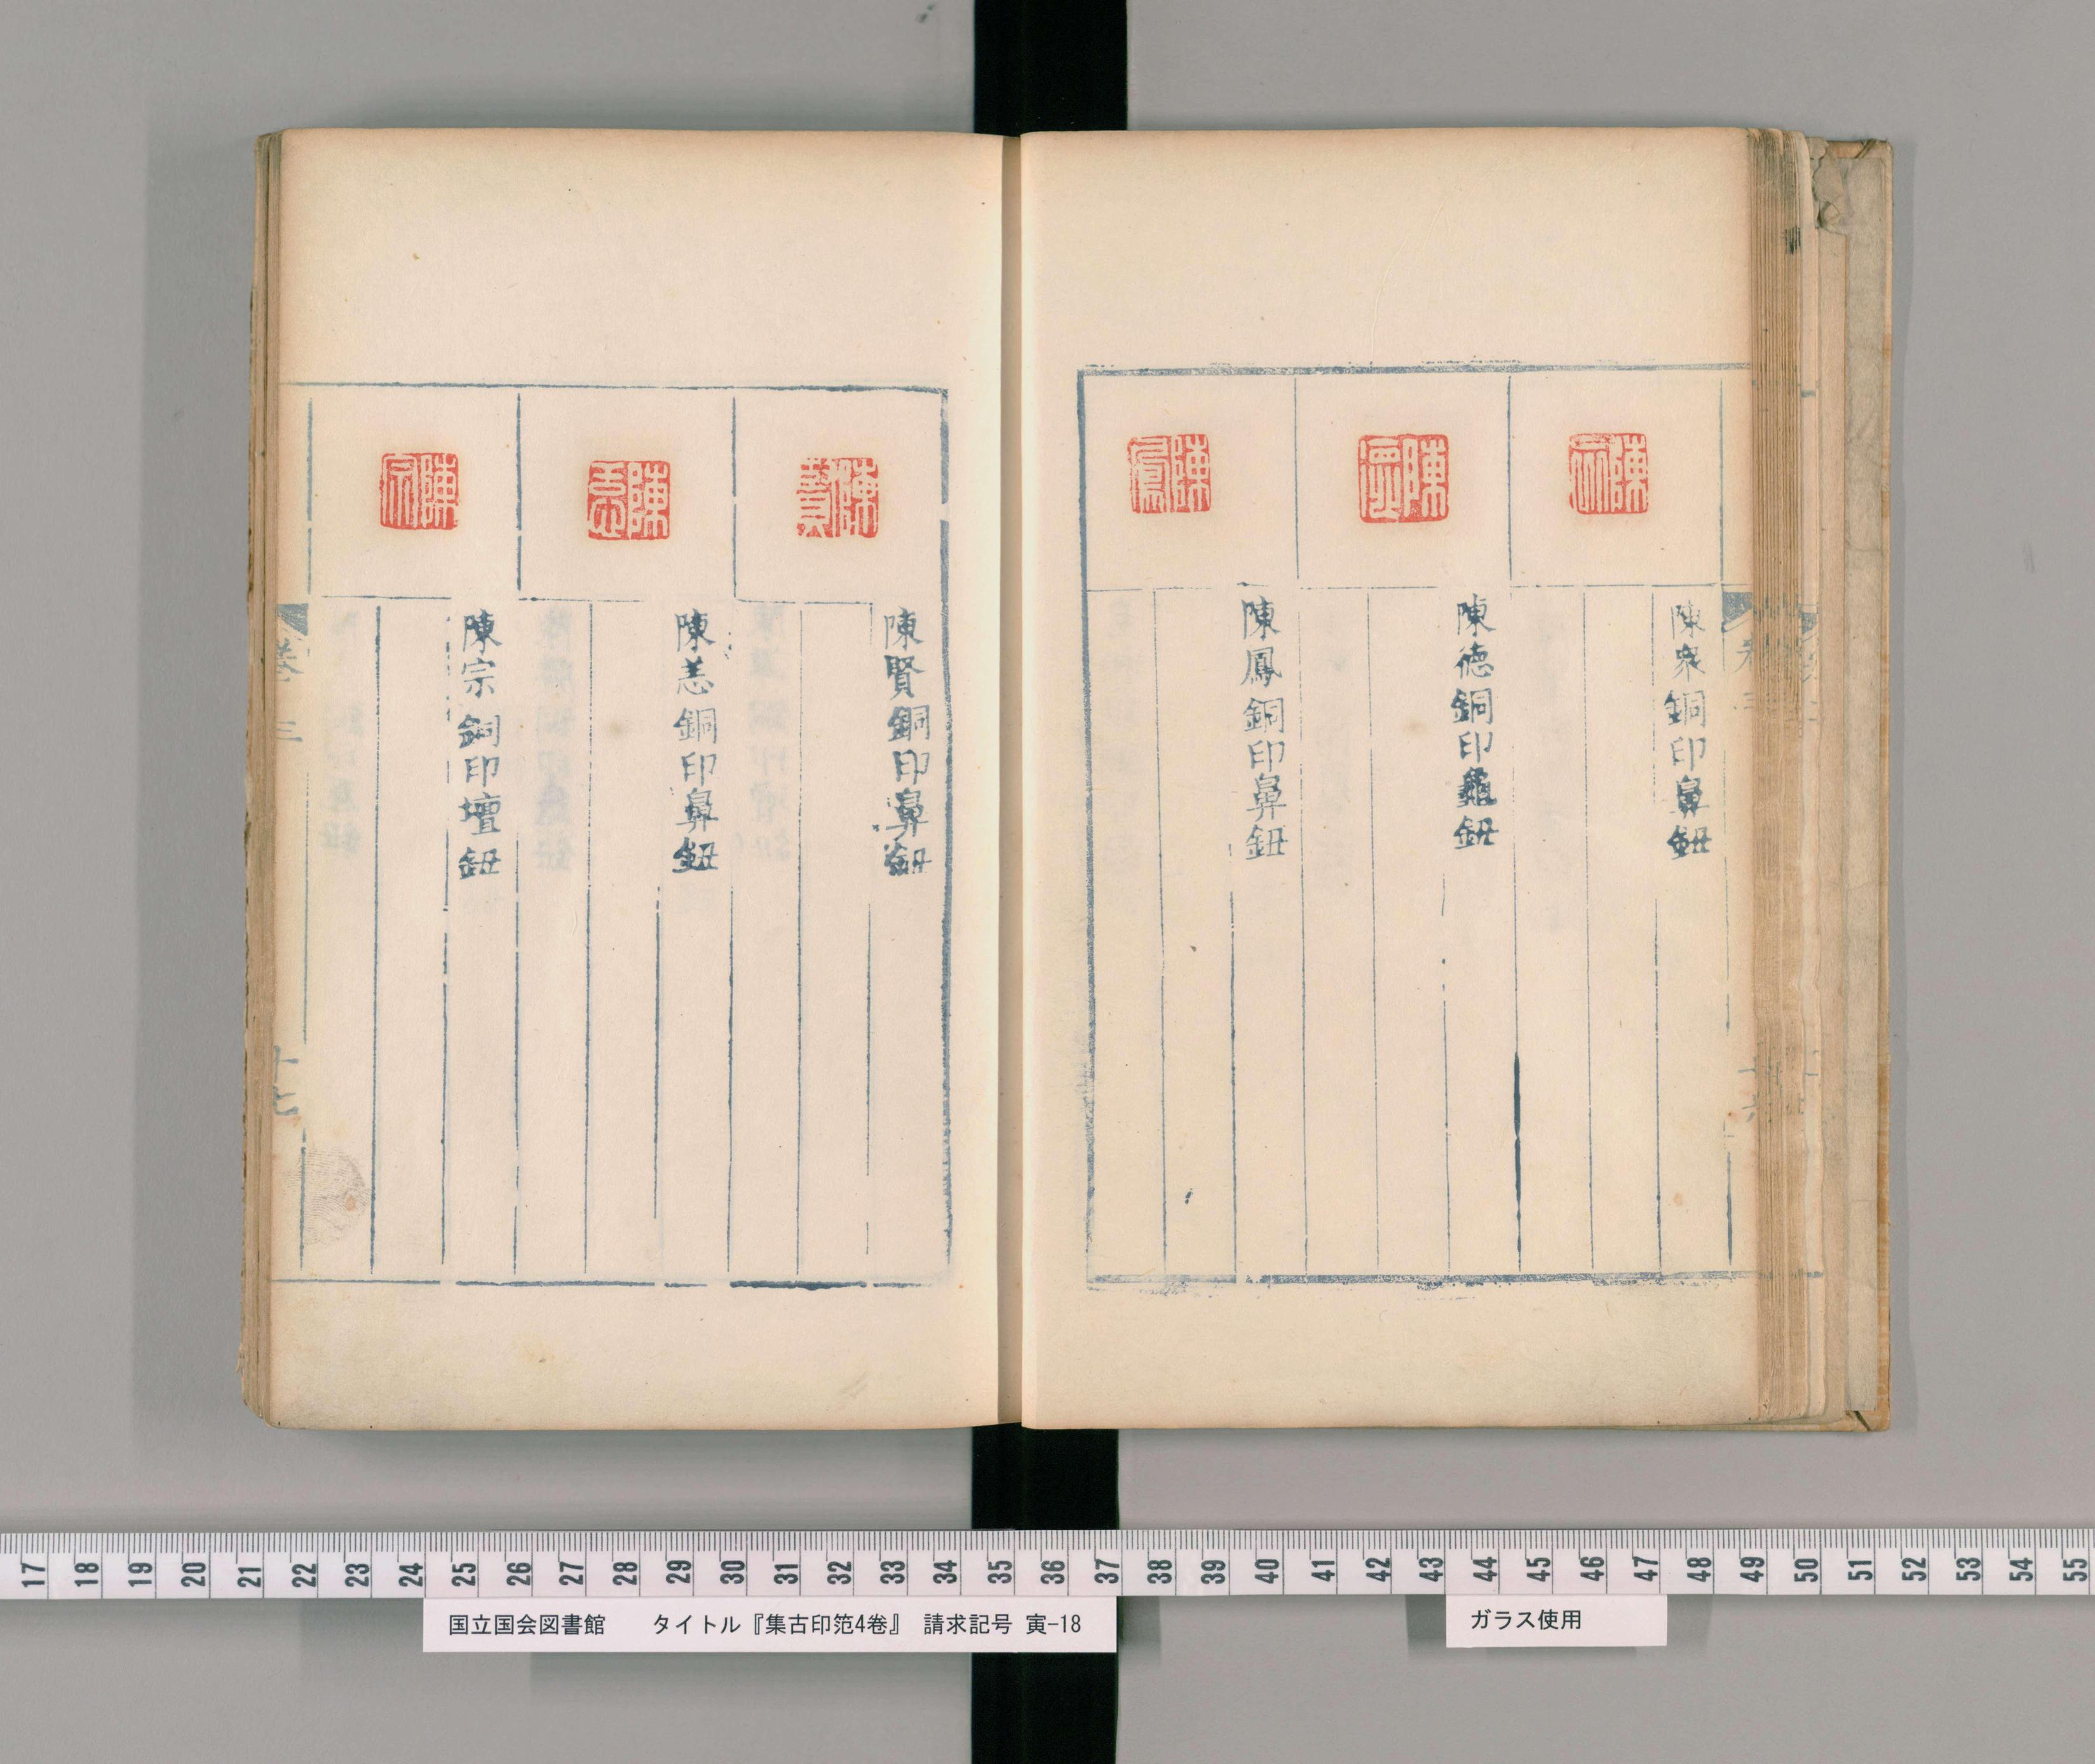 陳衆銅印鼻鈕
陳德銅印龜鈕
陳鳳銅印鼻鈕
陳賢銅印鼻鈕
陳恙銅印鼻鈕
陳宗銅印壇鈕
卷三
十七
17 18 19 20 21 22 23 24 25 26 27 28 29 30 31 32 33 34 35 36 37 38 39 40 41 42 43 44 45 46 47 48 49 50 51 52 53 54 55
国立国会図書館 タイトル『集古印笵4巻』 請求記号 寅-18
ガラス使用